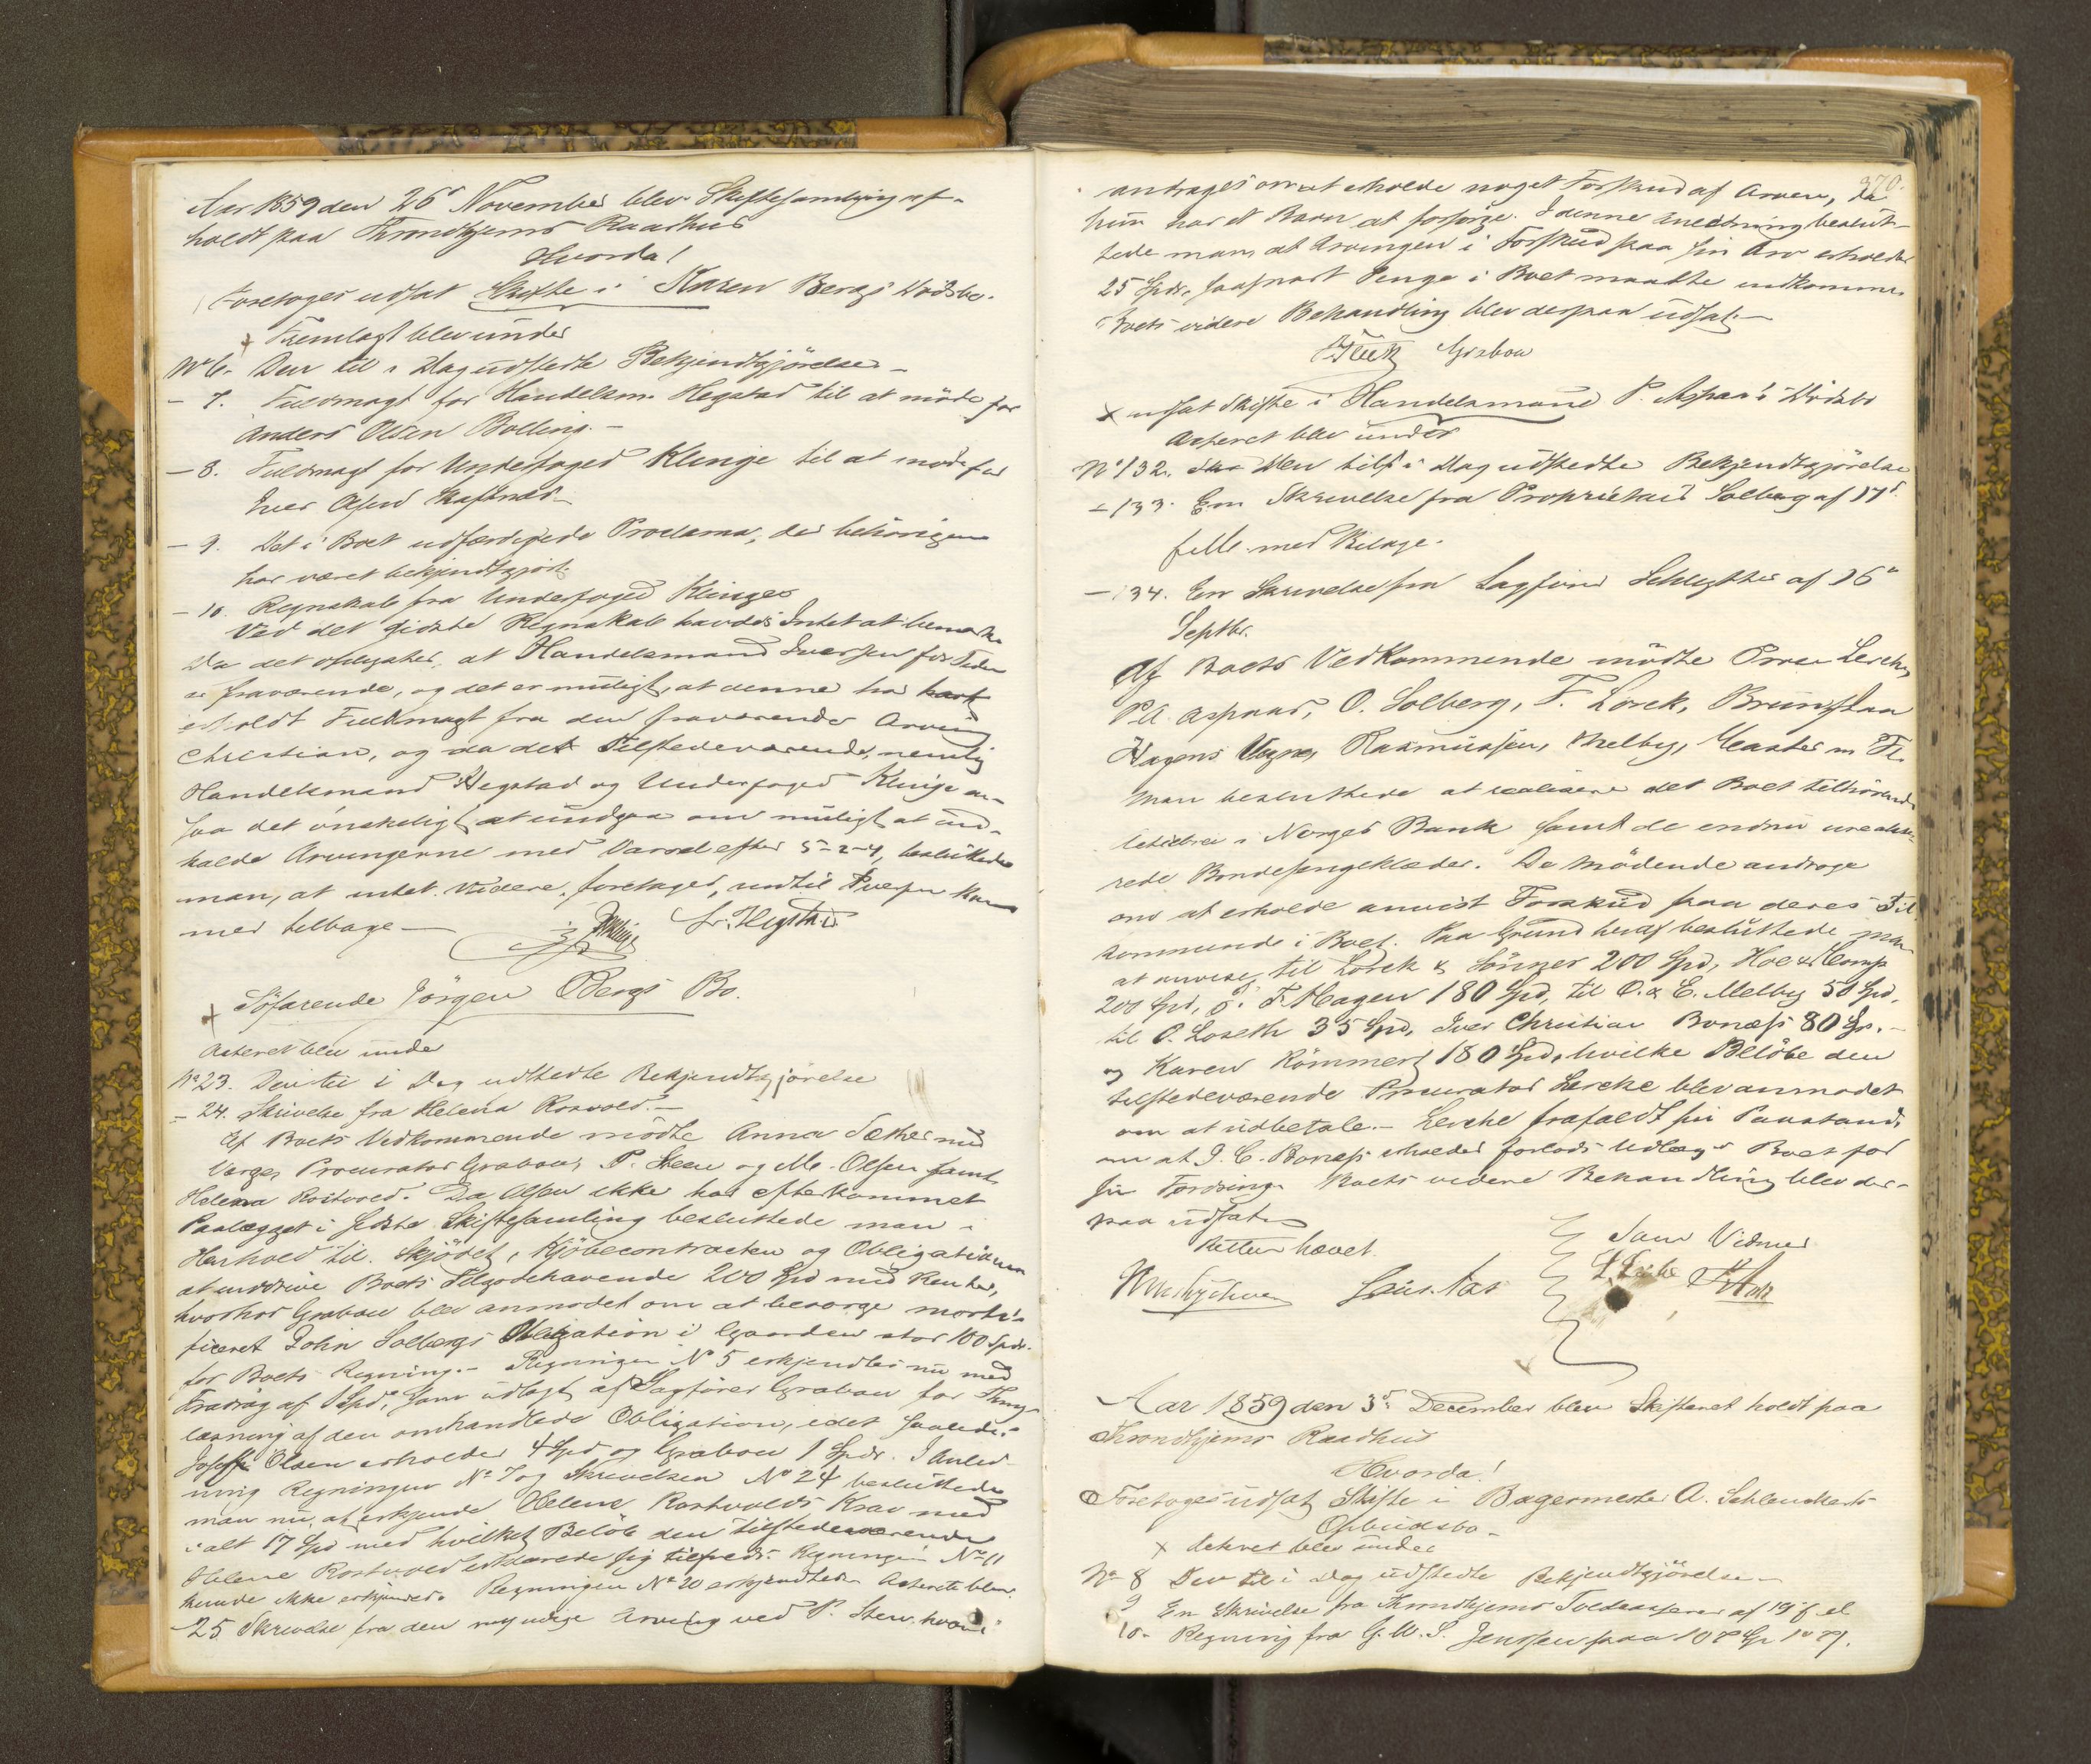 Aar 1859 den 26d November blev Skiftesamling af-
holdt paa Throndhjems Raadhus
Hvorda!
Foretoges udsat Skifte i Karen Bergs Dødsbo.
Fremlagt blev under
No 6. Den til i Dag udstedte Bekjendtgjørelse
- 7. Fuldmagt for Handelsm. Hegstad til at møde for
Anders Olsen Bolling.-
- 8. Fuldmagt for Underfoged Klinge til at møde for
Iver
- 9. Det i Boet udfærdigede Proclama, der behørigen
har været bekjendtgjort
- 10. Regnskab fra Underfoged Klinge
Ved det sidste Regnskab havdes Intet at bemærke
Da det oplystes, at Handelsmand Iversen for Tiden
er fraværende, og det er muligt, at denne har
erholdt Fuldmagt fra den fraværende Arving
Christian, og da det Tilstedeværende, nemlig
Handelsmand Hegstad og Underfoged Klinge an-
saa det ønskeligt at undgaa om muligt at ind-
kalde Arvingerne med Varsel efter 5-2-4, besluttede
man, at intet videre foretages, indtil Iversen kom-
mer tilbage -
Klinge Hegstad
Søfarende Jørgen Bergs Bo.
Acteret blev under
No 23. Den til i Dag udstedte Bekjendtgjørelse
- 24. Skrivelse fra Helena Rosvold.-
Af Boets Vedkommende mødte Anna Sæther med
Værge, Procurator Grabow, P. Steen og M. Olsen samt
Helena Rostvold. Da Olsen ikke har efterkommet
Paalægget i sidste Skiftesamling besluttede man i
Henhold til Skjødet, Kjøbecontracten og Obligationen
at inddrive Boets Tilgodehavende 200 Spd med Renter,
hvorhos Grabow blev anmodet om at besørge morti-
ficeret John Solbergs Obligation i Gaarden stor 100 Spdr.
for Boets Regning.- Regningen No 5 erkjendtes nu med
Fradrag af 1 Spd, som udlagt af Sagfører Grabow for Thing-
læsning af den omhandlede Obligation, idet saaledes
Olsen erholder 4 Spd og Grabow 1 Spdr. I Anled-
ning Regningen No 7 og Skrivelsen No 24 besluttede
man nu at erkjende Helene Rostvolds Krav med
ialt 17 Spd med hvilket Beløb den tilstedeværende
Helene Rostvold erklærede sig tilfreds. Regningen No 11
kunde ikke erkjendes. Regningen No 20 erkjendtes. Acteret blev
25. Skrivelse fra den myndige Arving ved P. Steen hvori
370.
andrages om at erholde noget Forskud af Arven, da
hun har et Barn at forsørge. I denne Anledning beslut-
tede man at Arvingen i Forskud paa sin Arv erholder
25 Spdr, saasnart Penge i Boet maatte indkomme.
Boets videre Behandling blev derpaa udsat.-
Grabow
x udsat Skifte i Handelsmand P. Aspaas Dødsbo
Acteret blev under
No 132. Den til i Dag udstedte Bekjendtgjørelse
- 133. En Skrivelse fra Proprietair Solberg af 17d
f. M. med Bilage.
- 134. En Skrivelse fra Sagfører Schlytter af 16d
Septbr.
Af Boets Vedkommende mødte Lerche,
P. A. Aspaas, O. Solberg, F. Lorck, Brun paa
Hagens Vegne, Rasmussen, Melby, m. Fl.
Man besluttede at realisere det Boet tilhørende
i Norges Bank samt de endnu ureali-
rede Bondesengeklæder. De Mødende androge
om at erholde anvist Forskud paa deres Til-
kommende i Boet. Paa Grund heraf besluttede man
at anvise til Lorck & Sønner 200 Spd, Hoe & Comp
200 Spd, F. Hagen 180 Spd, til O. & E. Melby 50 Spd,
til O. Loseth 35 Spd, Iver Christian Bonæs 80 Sp.-
og Karen Rømmen 180 Spd, hvilke Beløbe den
tilstedeværende Procurator Lerche blev anmodet
om at udbetale.- Lerche frafaldt sin Paastand
om at I. C. Bonæs erholder forlods Udlæg i Boet for
sin Fordring. Boets videre Behandling blev der-
paa udsat.
Retten hævet.
Som Vidner
Aar 1859 den 3d December blev Skifteret holdt paa
Throndhjems Raadhus
Hvorda!
Foretoges udsat Skifte i Bagermester A. Schlenckerts
Opbudsbo.
x Acteret blev under
No 8 Den til i Dag udstedte Bekjendtgjørelse.-
9 En Skrivelse fra Throndhjems Toldcasserer af 19d f.
10. Regning fra G. W. S. Jenssen paa